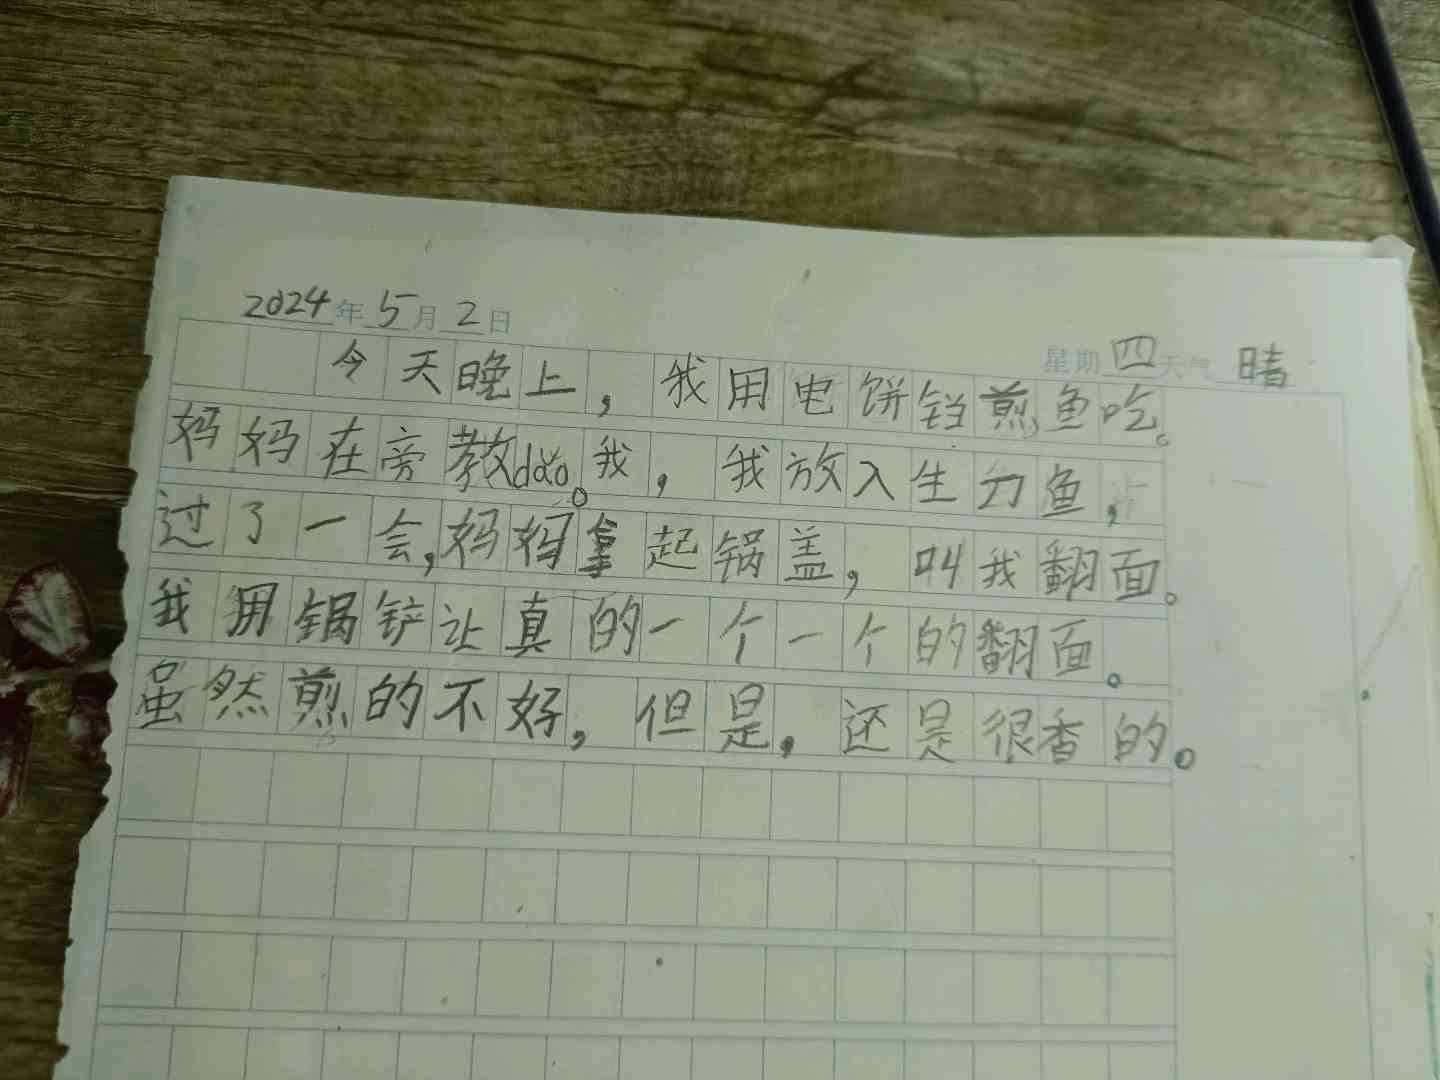 2024年5月2日
星期四天气晴
今天晚上，我用电饼铛煎鱼吃。
妈妈在旁教dǎo。我，我放入生刀鱼，
过了一会，妈妈拿起锅盖，叫我翻面。
我用锅铲让真的一个一个的翻面。
虽然煎的不好，但是，还是很香的。